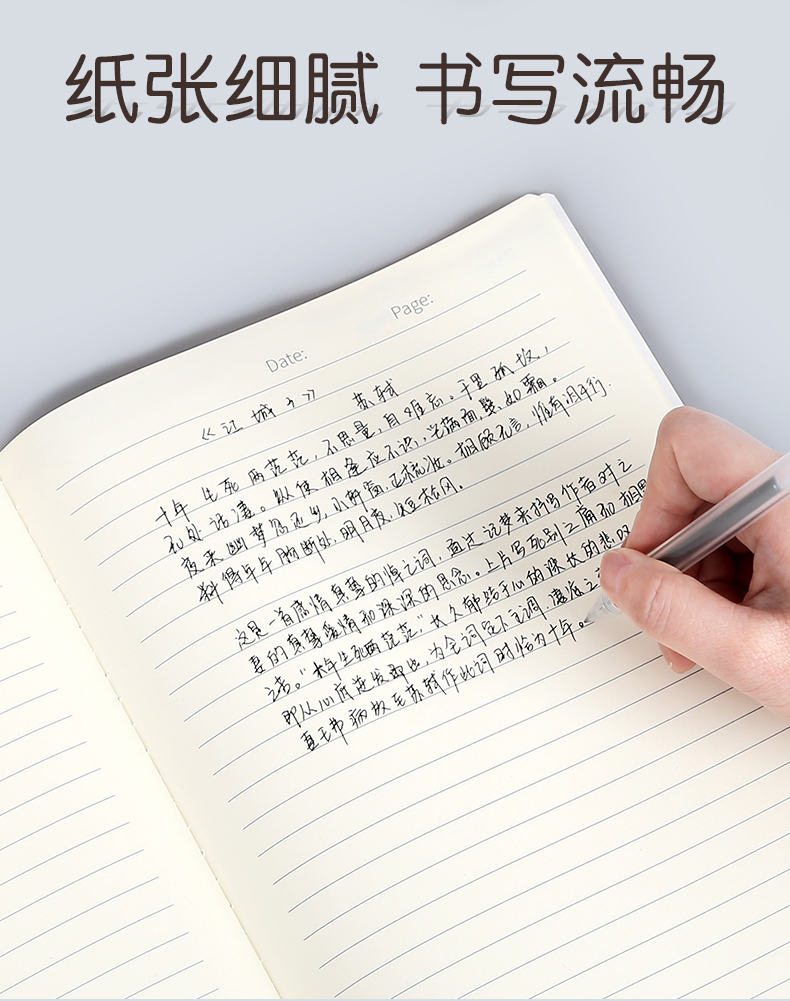 纸张细腻 书写流畅
Page:
Date:
《江城子》 苏轼
十年生死两茫茫，不思量，自难忘。千里孤坟，
无处话凄。纵使相逢应不识，尘满面，鬓如霜。
夜来幽梦忽还乡，小轩窗，正梳妆。相顾无言，惟有泪千行。
料得年年肠断处，明月夜，短松冈。
这是一首感情真挚的悼亡词，通过记梦来抒写作者对亡
妻的真挚爱情和深深的思念。上片写死别之痛而相思
之苦。"十年生死两茫茫，"长久郁结于心的深长的悲叹
即从心底迸发而出，为全词定下主调，凄哀之
直王弗病故至苏轼作此词时恰为十年。